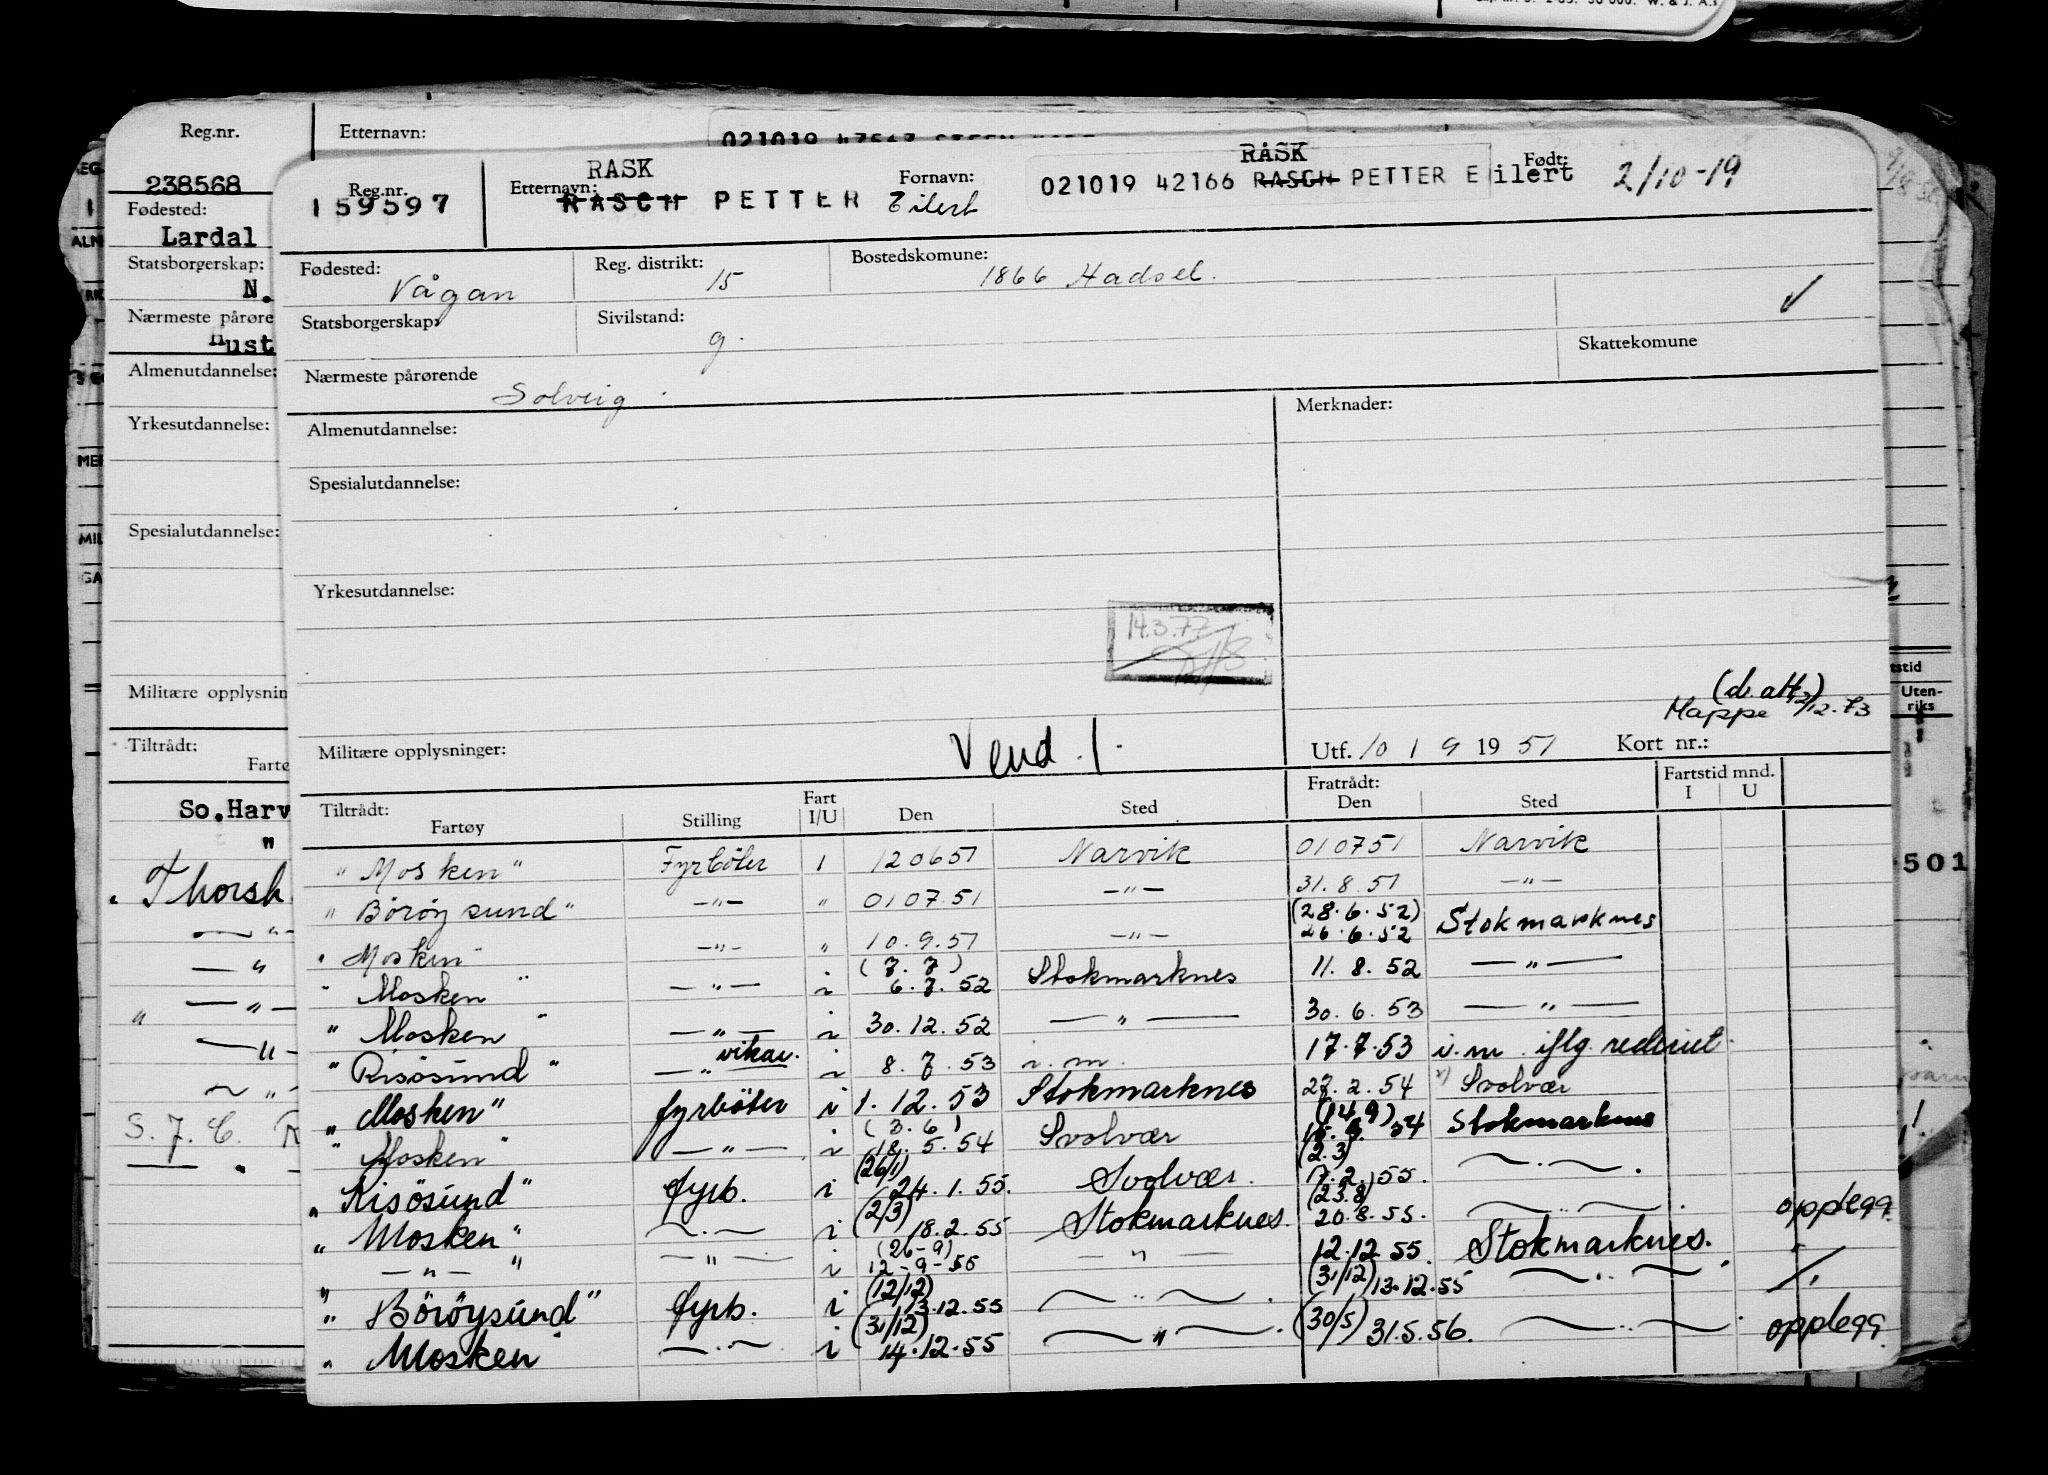 Reg.nr.
Etternavn:
238568
Fødested:
Lardal
Statsborgerskap:
N.
Nærmeste pårøre
Hust
Almenutdannelse:
Yrkesutdannelse:
Spesialutdannelse:
Militære opplysnin
Tiltrådt:
So.Harv
"
Thorsh
RASK RASK
Reg.nr. Etternavn: Fornavn: Født:
159597 RASCH PETTER Eilert 021019 42166 RASCH PETTER Eilert 2/10-19
Fødested: Vågan Reg. distrikt: 15 Bostedskomune: 1866 Hadsel.
Statsborgerskap: Sivilstand: g. Skattekomune
Nærmeste pårørende Solveig
Almenutdannelse: Merknader:
Spesialutdannelse:
Yrkesutdannelse:
14.3.77
Mappe 12.73
Militære opplysninger: Vend ! Utf. 10 / 9 19 51 Kort nr.:
Tiltrådt: Fart Fratrådt: Fartstid mnd.
Fartøy Stilling I/U Den Sted Den Sted I U
"Mosken" Fyrbøter I 120651 Narvik 010751 Narvik
"Börøysund" —"— " 0107.51 —"— 31.8.51 —"—
"Mosken" —"— " 10.9.51 —"— (28.6.52) 26.6.52 Stokmarknes
"Mosken" —"— i (7.7) 6.7.52 Stokmarknes 11.8.52 —"—
"Mosken" —"— i 30.12.52 —"— 30.6.53 —"—
"Risösund" —"— vikar. i 8.7.53 i.m. 17.7.53 i.m. iflg. rederiet.
"Mosken" fyrböter i 1.12.53 Stokmarknes 27.2.54 Svolvær
"Mosken" —"— i (3.6) 18.5.54 Svolvær (14.9) 15.9.54 Stokmarknes
"Risösund" fyrb. i (26/1) 24.1.55. Svolvær. (2.3) 7.2.55. —"—.
"Mosken" —"— i (2/3) 18.2.55 Stokmarknes. (23.8) 20.8.55. —"—. opplegg.
"—"—" —"— i (26-9) 12-9-55 —"— 12.12.55. Stokmarknes. "
"Börøysund" fyrb. i (12/12) 13.12.55 —"—. (31/12) 13.12.55 —"—. /.
"Mosken" —"— i (31/12) 14.12.55 —"—. (30/5) 31.5.56. —"—. opplegg.
Uten-
riks
501